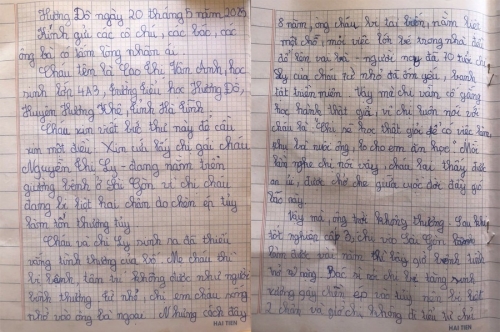 Hương Đô ngày 20 tháng 5 năm
Kính gửu các cô chú, các bác, các
ông bà có tấm lòng nhân ái
Cháu tên là Cao Thị Vân Anh, học
sinh lớp 4A3, trường tiểu học Hương Đô,
Huyện Hương Khê, tỉnh Hà Tĩnh
Cháu xin viết bức thư này để cầu
xin một điều. Xin cứu lấy chị gái cháu
Nguyễn Thị Ly - đang nằm trên
giường bệnh ở Sài Gòn vì chị cháu
đang bị liệt hai chân do chèn ép tủy
làm tổn thương tủy
Cháu và chị Ly sinh ra đã thiếu
vắng tình thương của bố. Mẹ cháu thì
bị bệnh, tâm trí không được như người
bình thường từ nhỏ, chị em cháu sống
nhờ vào ông bà ngoại. Nhưng cách đây
HAI TIEN
8 năm, ông cháu bị tai biến, nằm liệt
một chỗ, mọi việc lớn bé trong nhà đều
đổ lên vai bà - người nay đã 70 tuổi. chị
Ly của cháu từ nhỏ đã ốm yếu, bệnh
tật triền miên. Vậy mà chị vẫn cố gắng
học hành thật giỏi, vì chị luôn nói với
cháu là. Chị sẽ học thật giỏi để có việc làm
phụ bà nuôi ông, lo cho em ăn học". Mỗi
lần nghe chị nói vậy cháu lại thấy được
an ủi, được chở che giữa cuộc đời đầy gió
bão này
Vậy mà, ông trời không thương. Sau khi
tốt nghiệp cấp 3, chị vào Sài Gòn
làm được vài năm thì bây giờ bệnh tình
trở nặng. Bác sĩ nói chị bị tăng sinh
xương gây chèn ép vào tủy nên bị liệt
2 chân và giờ chị không đi lại
HAI TIEN